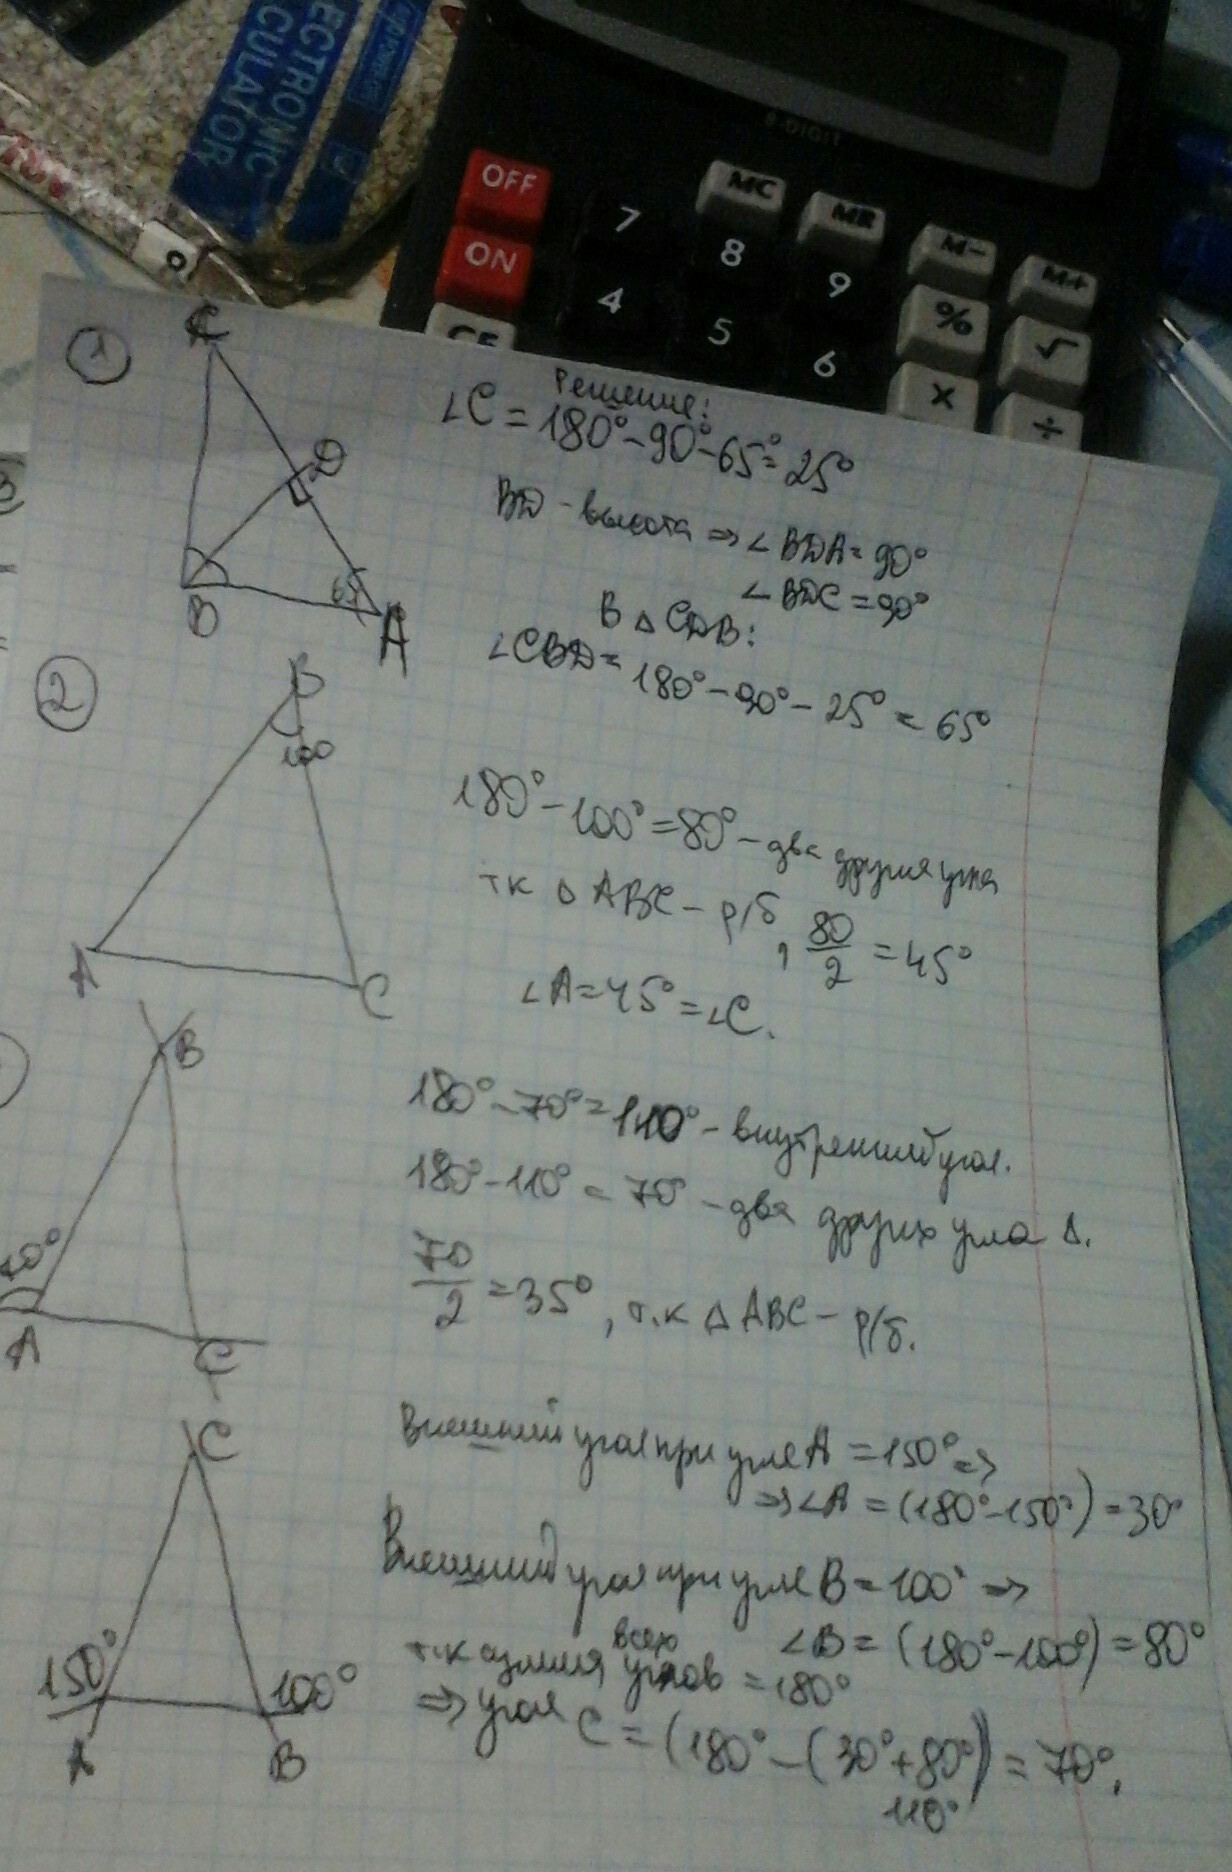 ELECTRONIC
CALCULATOR
8-DIGIT
OFF
MC
MR
M-
M+
7
8
9
%
√
ON
4
5
6
×
÷
CE
1
C
D
B
65
A
Решение:
∠C = 180° - 90° - 65° = 25°
BD - высота ⇒ ∠BDA = 90°
∠BDC = 90°
В △ CDB:
∠CBD = 180° - 90° - 25° = 65°
2
B
100
A
C
180° - 100° = 80° - два других угла
тк △ ABC - р/б, 80/2 = 45°
∠A = 45° = ∠C.
B
70°
A
C
180° - 70° = 110° - внутренний угол.
180° - 110° = 70° - два других угла △.
70/2 = 35°, т.к △ ABC - р/б.
C
150°
100°
A
B
Внешний угол при угле A = 150° ⇒
⇒ ∠A = (180° - 150°) = 30°
Внешний угол при угле B = 100° ⇒
∠B = (180° - 100°) = 80°
т.к сумма всех углов = 180°
⇒ угол C = (180° - (30° + 80°)) = 70°.
110°